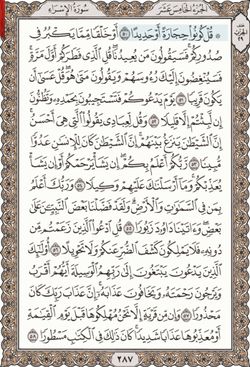 الجُزْءُ الخَامِسَ عَشَرَ
سُورَةُ الإِسْرَاءِ
۞ قُلْ كُونُوا۟ حِجَارَةً أَوْ حَدِيدًا ۝٥٠ أَوْ خَلْقًا مِّمَّا يَكْبُرُ فِى
صُدُورِكُمْ ۚ فَسَيَقُولُونَ مَن يُعِيدُنَا ۖ قُلِ ٱلَّذِى فَطَرَكُمْ أَوَّلَ مَرَّةٍ ۚ
فَسَيُنْغِضُونَ إِلَيْكَ رُءُوسَهُمْ وَيَقُولُونَ مَتَىٰ هُوَ ۖ قُلْ عَسَىٰٓ أَن
يَكُونَ قَرِيبًا ۝٥١ يَوْمَ يَدْعُوكُمْ فَتَسْتَجِيبُونَ بِحَمْدِهِۦ وَتَظُنُّونَ
إِن لَّبِثْتُمْ إِلَّا قَلِيلًا ۝٥٢ وَقُل لِّعِبَادِى يَقُولُوا۟ ٱلَّتِى هِىَ أَحْسَنُ ۚ
إِنَّ ٱلشَّيْطَٰنَ يَنزَغُ بَيْنَهُمْ ۚ إِنَّ ٱلشَّيْطَٰنَ كَانَ لِلْإِنسَٰنِ عَدُوًّا
مُّبِينًا ۝٥٣ رَّبُّكُمْ أَعْلَمُ بِكُمْ ۖ إِن يَشَأْ يَرْحَمْكُمْ أَوْ إِن يَشَأْ
يُعَذِّبْكُمْ ۚ وَمَآ أَرْسَلْنَٰكَ عَلَيْهِمْ وَكِيلًا ۝٥٤ وَرَبُّكَ أَعْلَمُ
بِمَن فِى ٱلسَّمَٰوَٰتِ وَٱلْأَرْضِ ۗ وَلَقَدْ فَضَّلْنَا بَعْضَ ٱلنَّبِيِّـۧنَ عَلَىٰ
بَعْضٍ ۖ وَءَاتَيْنَا دَاوُۥدَ زَبُورًا ۝٥٥ قُلِ ٱدْعُوا۟ ٱلَّذِينَ زَعَمْتُم مِّن
دُونِهِۦ فَلَا يَمْلِكُونَ كَشْفَ ٱلضُّرِّ عَنكُمْ وَلَا تَحْوِيلًا ۝٥٦ أُو۟لَٰٓئِكَ
ٱلَّذِينَ يَدْعُونَ يَبْتَغُونَ إِلَىٰ رَبِّهِمُ ٱلْوَسِيلَةَ أَيُّهُمْ أَقْرَبُ
وَيَرْجُونَ رَحْمَتَهُۥ وَيَخَافُونَ عَذَابَهُۥٓ ۚ إِنَّ عَذَابَ رَبِّكَ كَانَ
مَحْذُورًا ۝٥٧ وَإِن مِّن قَرْيَةٍ إِلَّا نَحْنُ مُهْلِكُوهَا قَبْلَ يَوْمِ ٱلْقِيَٰمَةِ
أَوْ مُعَذِّبُوهَا عَذَابًا شَدِيدًا ۚ كَانَ ذَٰلِكَ فِى ٱلْكِتَٰبِ مَسْطُورًا ۝٥٨
٢٨٧